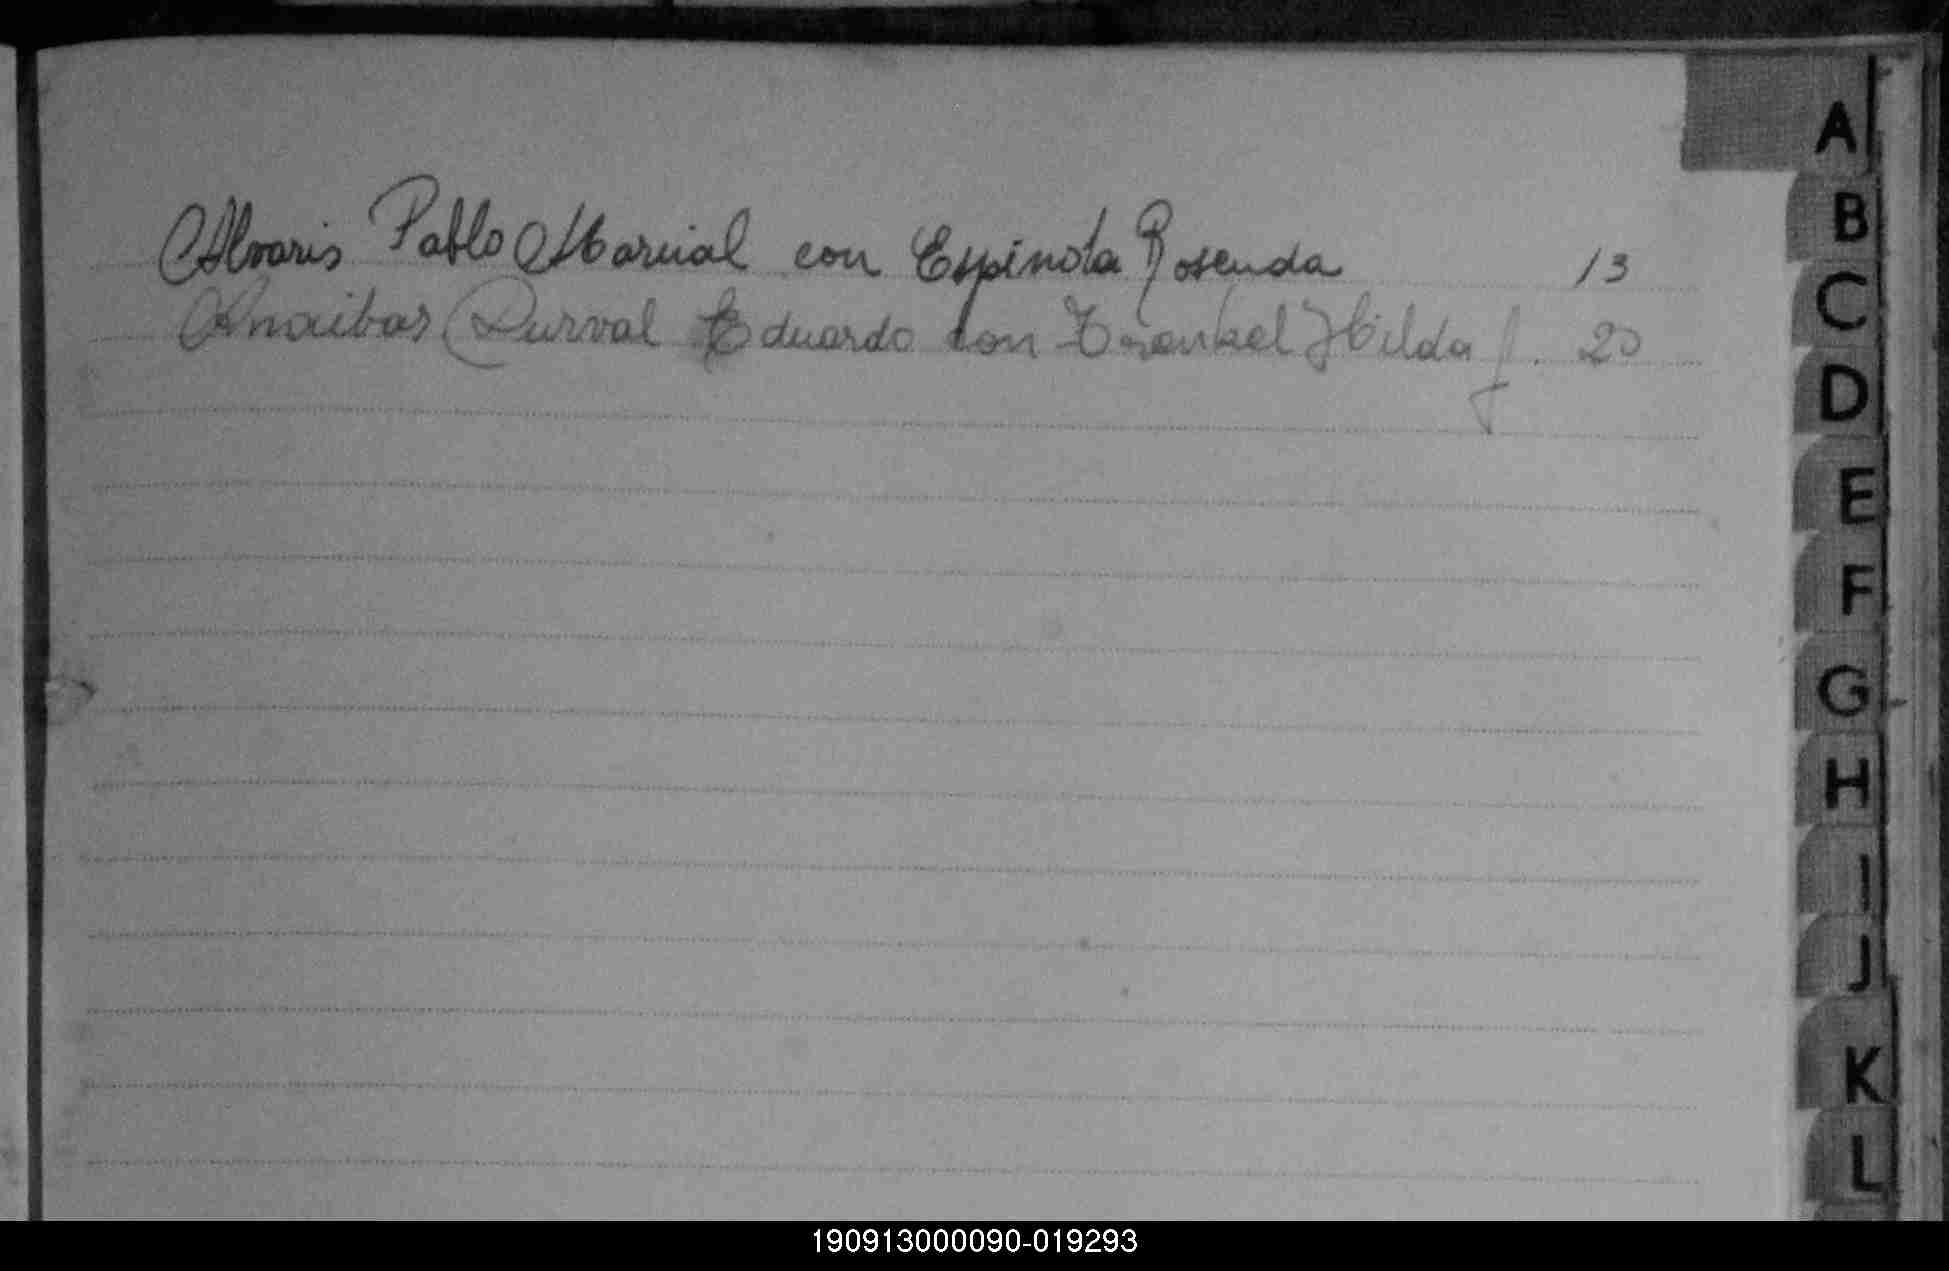 A
B
Alvaris Pablo Marcial con Espinola Rosenda 13
C
Anaibas Durval Eduardo con Hilda J. 20
D
E
F
G
H
I
J
K
L
190913000090-019293